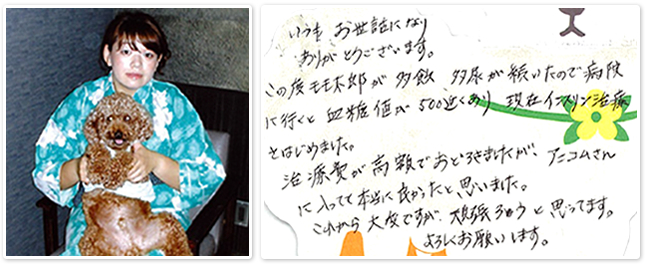 いつも お世話になり
ありがとうございます。
この度モモ太郎が 多飲 多尿が続いたので病院
に行くと 血糖値が 500近くあり 現在インスリン治療
をはじめました。
治療費が高額でおどろきましたが、アニコムさん
に入ってて本当に良かったと思いました。
これから大変ですが、頑張ろうと思ってます。
よろしくお願いします。